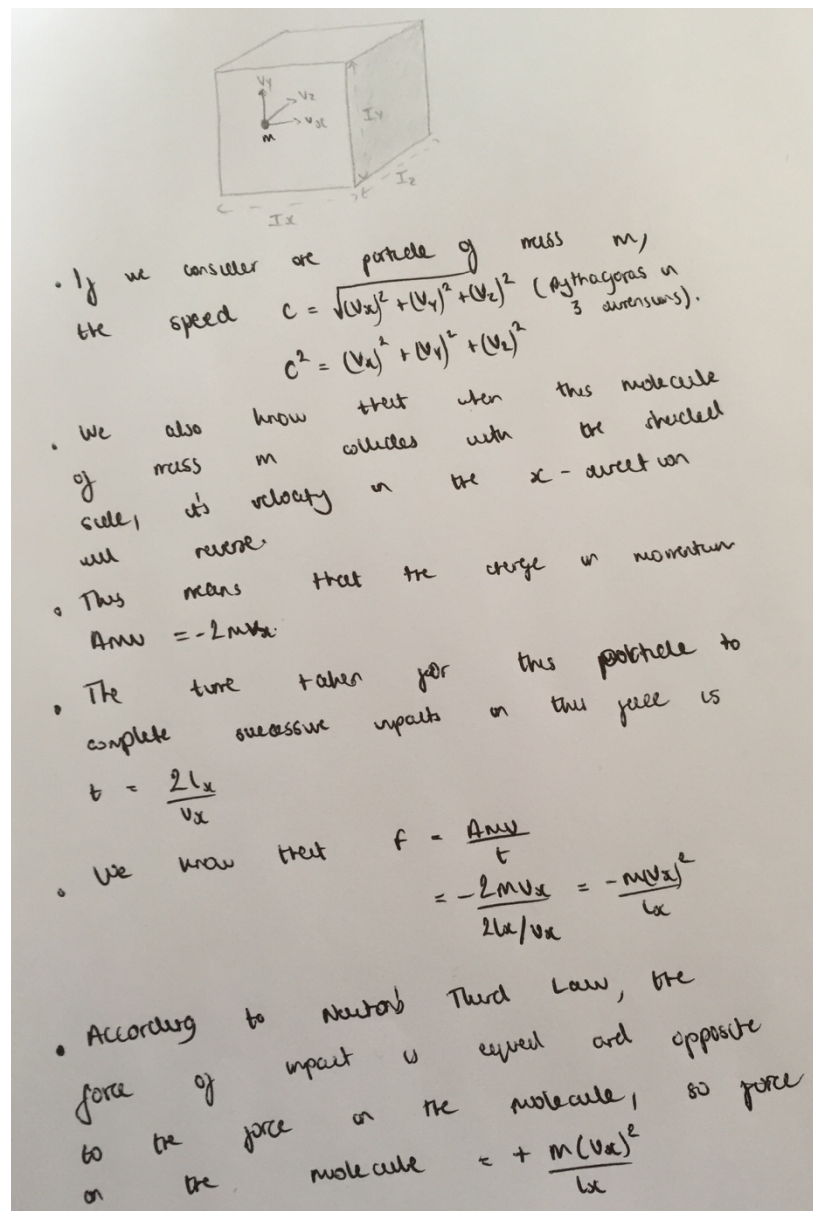 Vy
Vz
Vx
m
Iy
Iz
Ix
• If we consider one particle of mass m,
the speed C = √(Vx)² + (Vy)² + (Vz)² (Pythagoras in
3 dimensions).
C² = (Vx)² + (Vy)² + (Vz)²
• We also know that when this molecule
of mass m collides with the shaded
side, it's velocity in the x - direction
will reverse.
• This means that the change in momentum
Δmv = -2mvx.
• The time taken for this particle to
complete successive impacts on this face is
t = 2lx / vx
• We know that F = Δmv / t
= -2mvx / 2lx/vx = -m(vx)² / lx
• According to Newton's Third Law, the
force of impact is equal and opposite
to the force on the molecule, so force
on the molecule = + m(vx)² / lx